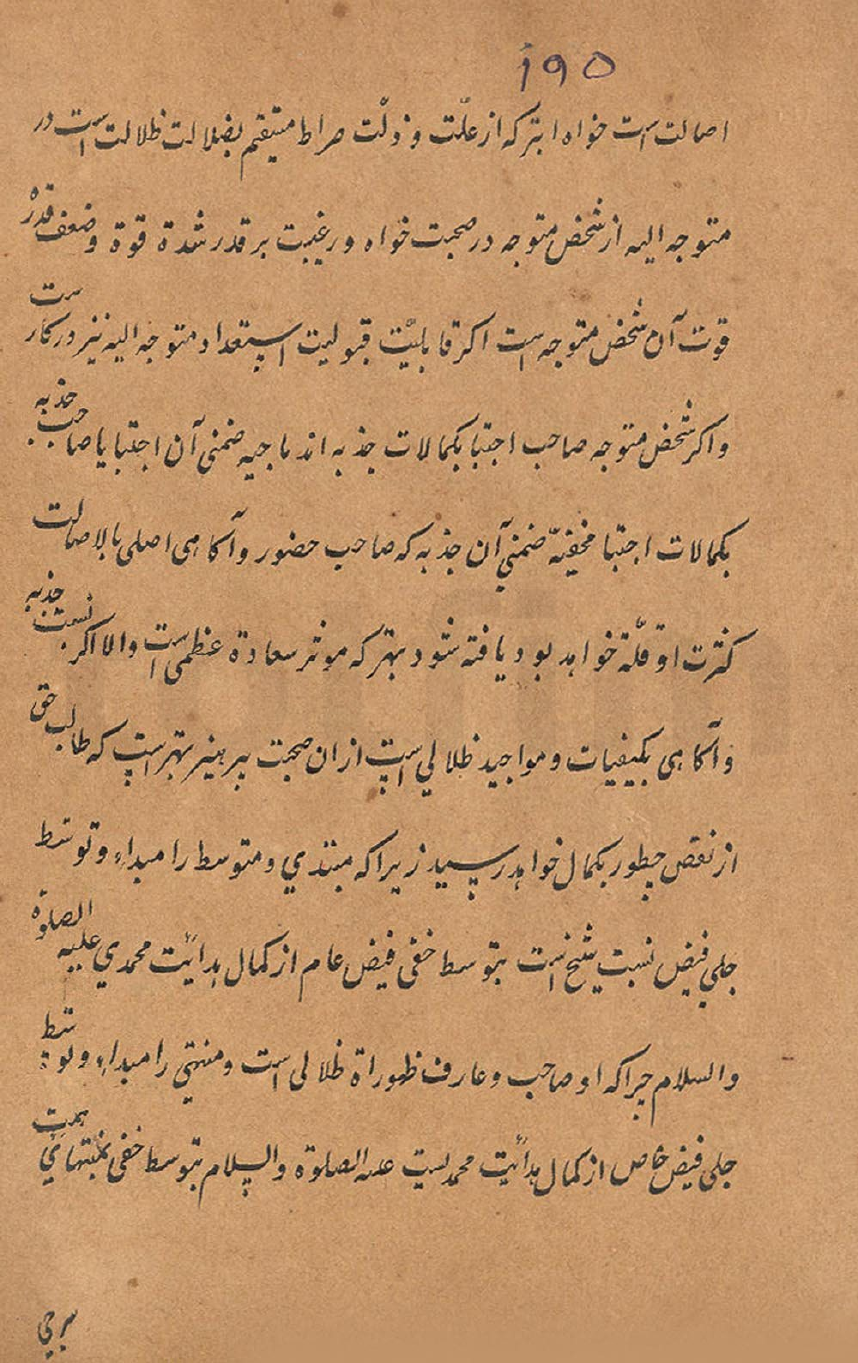 ۱۹۵
اصالت است خواه ابتر که از علّت و ذلّت صراط مستقیم بضلالت ظلالت است در
متوجه الیه از شخص متوجه در صحبت خواه و رغبت بر قدر شدة قوة و ضعف قدرْ
قوت آن شخص متوجه است اکر قابلیّت قبولیت استعداد متوجه الیه نیز در کار ست
و اکر شخص متوجه صاحب اجتبا بکمالات جذبه اندماجیه ضمنی آن اجتبا یا صاحب جذبه
بکمالات اجتبا مخفیّه ضمنی آن جذبه که صاحب حضور و آکاهی اصلی بالاصالت
کثرت او قلّة خواهد بود یافته شود بهتر که موثر سعادة عظمی است والا اکر نسبت جذبه
و آکاهی بکیفیات و مواجید ظلالی است ازان صحبت پرهیز بهتر است که طالب حق
از نقص چطور بکمال خواهد رسید زیرا که مبتدی و متوسط را مبداء و توسّط
جلی فیض نسبت شیخ است بتوسط خفی فیض عام از کمال بدائیت محمدی علیه الصلوة
والسلام چرا که او صاحب و عارف ظهوراة ظلالی است و منتهی را مبداء و توسّط
جلی فیض خاص از کمال بدائیت محمدیست علیه الصلوة والسلام بتوسط خفی همت